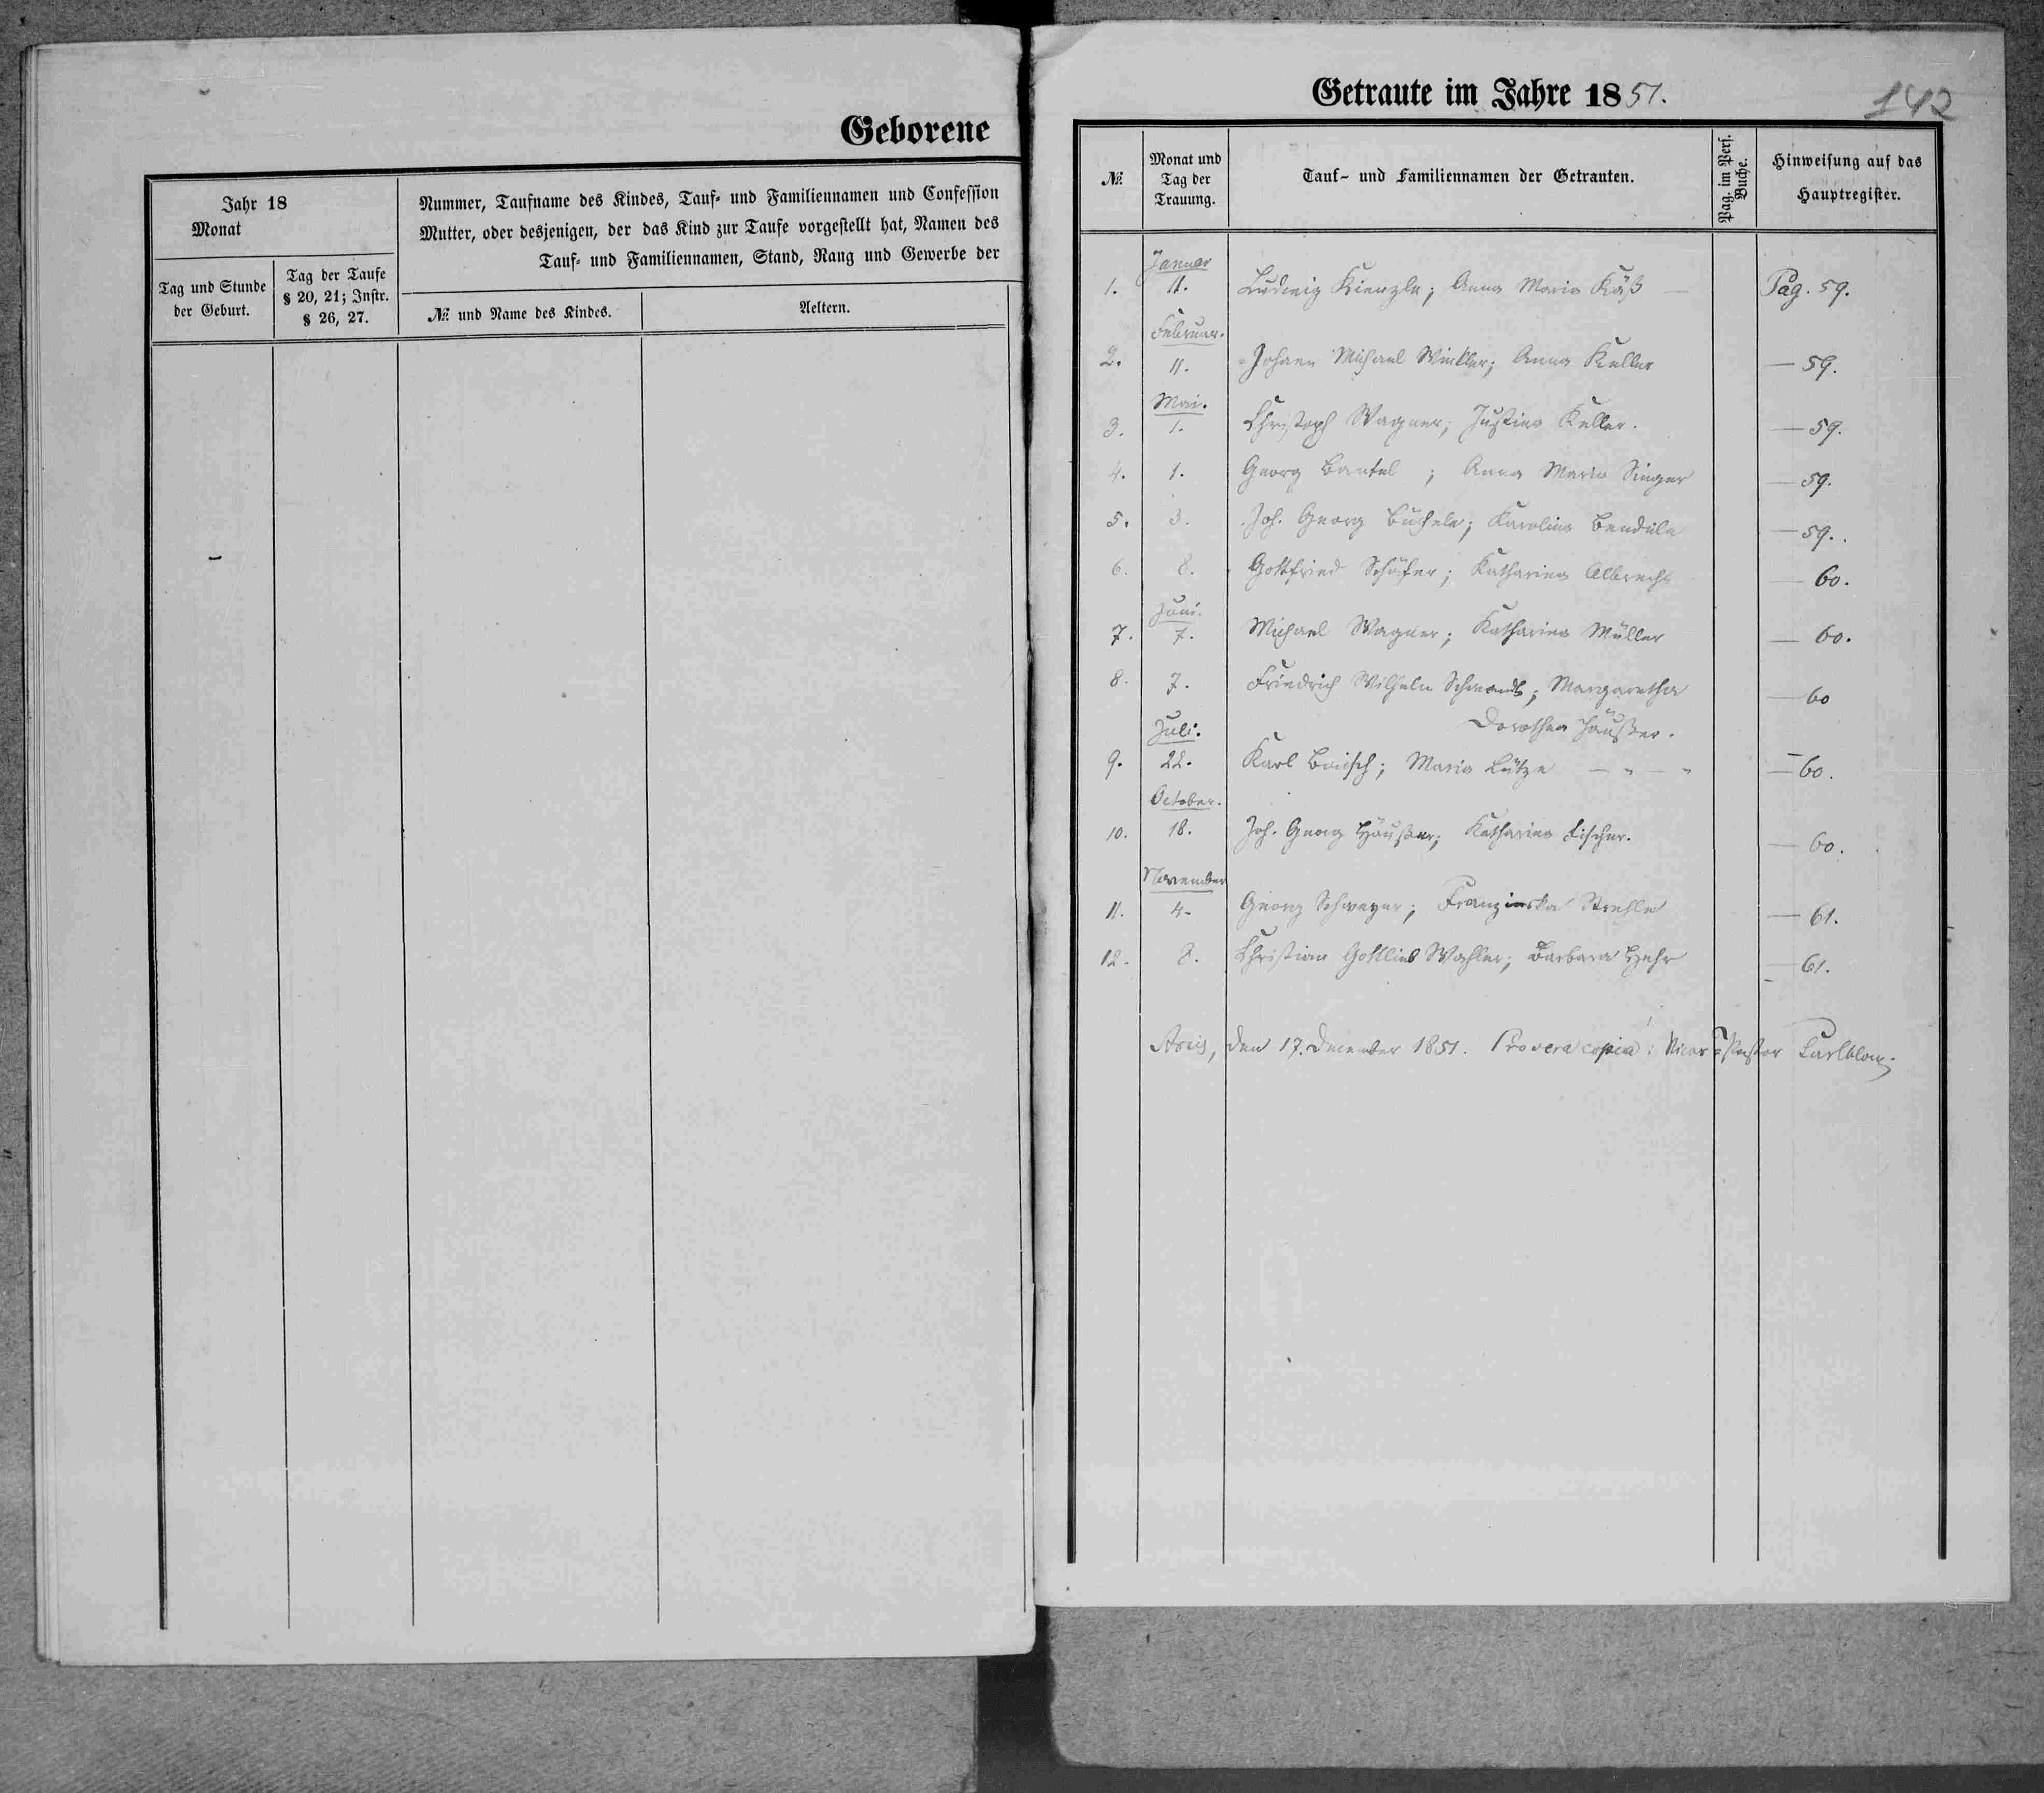 Geborene
Jahr 18
Monat
Nummer, Taufname des Kindes, Tauf- und Familiennamen und Confession
Mutter, oder desjenigen, der das Kind zur Taufe vorgestellt hat, Namen des
Tauf- und Familiennamen, Stand, Rang und Gewerbe der
Tag und Stunde
der Geburt.
Tag der Taufe
§ 20, 21; Instr.
§ 26, 27.
№ und Name des Kindes.
Aeltern.
142
Getraute im Jahre 1851.
№
Monat und
Tag der
Trauung.
Tauf- und Familiennamen der Getrauten.
Pag. im Pers.
Buche.
Hinweisung auf das
Hauptregister.
Januar
1. 11. Ludwig Kienzle; Anna Maria Käß — Pag. 59.
Februar.
2. 11. Johann Michael Winkler; Anna Keller — 59.
Mai.
3. 1. Christoph Wagner; Justina Keller. — 59.
4. 1. Georg Bantel; Anna Maria Singer — 59.
5. 3. Joh. Georg Büchele; Karolina Bendele — 59.
6. 8. Gottfried Schäfer; Katharina Albrecht — 60.
Juni.
7. 7. Michael Wagner; Katharina Müller — 60.
8. 7. Friedrich Wilhelm Schwandt; Margaretha — 60
Dorothea Häußer.
Juli.
9. 22. Karl Baisch; Maria Lütze — " — " — 60.
October.
10. 18. Joh. Georg Häußer; Katharina Fischer. — 60.
November
11. 4. Georg Schweyer; Franziska Strehle — 61.
12. 8. Christian Gottlieb Wahler; Barbara Hehr — 61.
Arcis, den 17. December 1851. Pro vera copia: Vicar Pastor Carlblom.